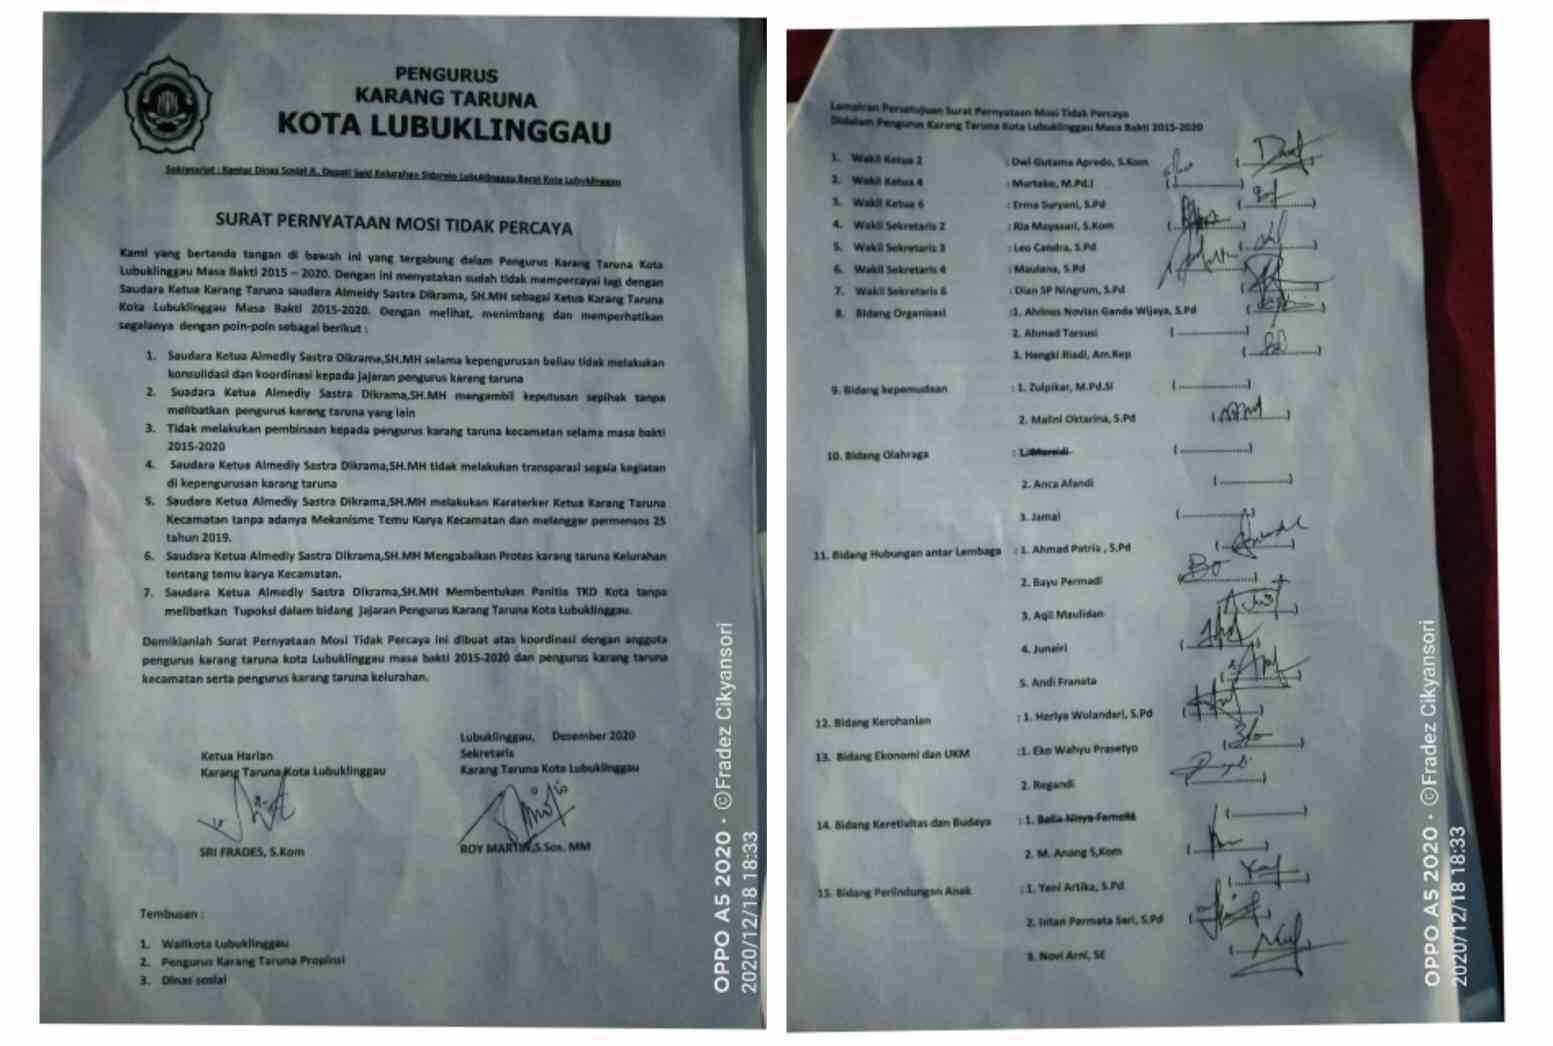 PENGURUS
KARANG TARUNA
KOTA LUBUKLINGGAU
Sekretariat : Kantor Dinas Sosial Jl. Depati Said Kelurahan Sidorejo Lubuklinggau Barat Kota Lubuklinggau
SURAT PERNYATAAN MOSI TIDAK PERCAYA
Kami yang bertanda tangan di bawah ini yang tergabung dalam Pengurus Karang Taruna Kota
Lubuklinggau Masa Bakti 2015 – 2020. Dengan ini menyatakan sudah tidak mempercayai lagi dengan
Saudara Ketua Karang Taruna saudara Almeidy Sastra Dikrama, SH.MH sebagai Ketua Karang Taruna
Kota Lubuklinggau Masa Bakti 2015-2020. Dengan melihat, menimbang dan memperhatikan
segalanya dengan poin-poin sebagai berikut :
1. Saudara Ketua Almediy Sastra Dikrama,SH.MH selama kepengurusan beliau tidak melakukan
konsulidasi dan koordinasi kepada jajaran pengurus karang taruna
2. Suadara Ketua Almediy Sastra Dikrama,SH.MH mengambil keputusan sepihak tanpa
melibatkan pengurus karang taruna yang lain
3. Tidak melakukan pembinaan kepada pengurus karang taruna kecamatan selama masa bakti
2015-2020
4. Saudara Ketua Almediy Sastra Dikrama,SH.MH tidak melakukan transparasi segala kegiatan
di kepengurusan karang taruna
5. Saudara Ketua Almediy Sastra Dikrama,SH.MH melakukan Karaterker Ketua Karang Taruna
Kecamatan tanpa adanya Mekanisme Temu Karya Kecamatan dan melanggar permensos 25
tahun 2019.
6. Saudara Ketua Almediy Sastra Dikrama,SH.MH Mengabaikan Protes karang taruna Kelurahan
tentang temu karya Kecamatan.
7. Saudara Ketua Almediy Sastra Dikrama,SH.MH Membentukan Panitia TKD Kota tanpa
melibatkan Tupoksi dalam bidang jajaran Pengurus Karang Taruna Kota Lubuklinggau.
Demikianlah Surat Pernyataan Mosi Tidak Percaya ini dibuat atas koordinasi dengan anggota
pengurus karang taruna kota Lubuklinggau masa bakti 2015-2020 dan pengurus karang taruna
kecamatan serta pengurus karang taruna kelurahan.
Lubuklinggau, Desember 2020
Ketua Harian
Karang Taruna Kota Lubuklinggau
SRI FRADES, S.Kom
Sekretaris
Karang Taruna Kota Lubuklinggau
ROY MARTIN,S.Sos. MM
Tembusan :
1. Walikota Lubuklinggau
2. Pengurus Karang Taruna Propinsi
3. Dinas sosial
OPPO A5 2020 · ©Fradez Cikyansori
2020/12/18 18:33
Lampiran Persetujuan Surat Pernyataan Mosi Tidak Percaya
Didalam Pengurus Karang Taruna Kota Lubuklinggau Masa Bakti 2015-2020
1. Wakil Ketua 2 : Dwi Gutama Apredo, S.Kom
2. Wakil Ketua 4 : Murtako, M.Pd.I
3. Wakil Ketua 6 : Erma Suryani, S.Pd
4. Wakil Sekretaris 2 : Ria Mayasari, S.Kom
5. Wakil Sekretaris 3 : Leo Candra, S.Pd
6. Wakil Sekretaris 4 : Maulana, S.Pd
7. Wakil Sekretaris 6 : Dian SP Ningrum, S.Pd
8. Bidang Organisasi :1. Novian Ganda Wijaya, S.Pd
2. Ahmad Tarsusi
3. Hengki Riadi, Am.Kep
9. Bidang kepemudaan : 1. Zulpikar, M.Pd.SI
2. Malini Oktarina, S.Pd
10. Bidang Olahraga : 1.
2. Anca Afandi
3. Jamal
11. Bidang Hubungan antar Lembaga : 1. Ahmad Patria , S.Pd
2. Bayu Permadi
3. Aqil Maulidan
4. Junairi
5. Andi Franata
12. Bidang Kerohanian : 1. Heriya Wulandari, S.Pd
13. Bidang Ekonomi dan UKM :1. Eko Wahyu Prasetyo
2. Regandi
14. Bidang Keretivitas dan Budaya : 1.
2. M. Anang S,Kom
15. Bidang Perlindungan Anak : 1. Yeni Artika, S.Pd
2. Intan Permata Sari, S.Pd
3. Novi Arni, SE
OPPO A5 2020 · ©Fradez Cikyansori
2020/12/18 18:33